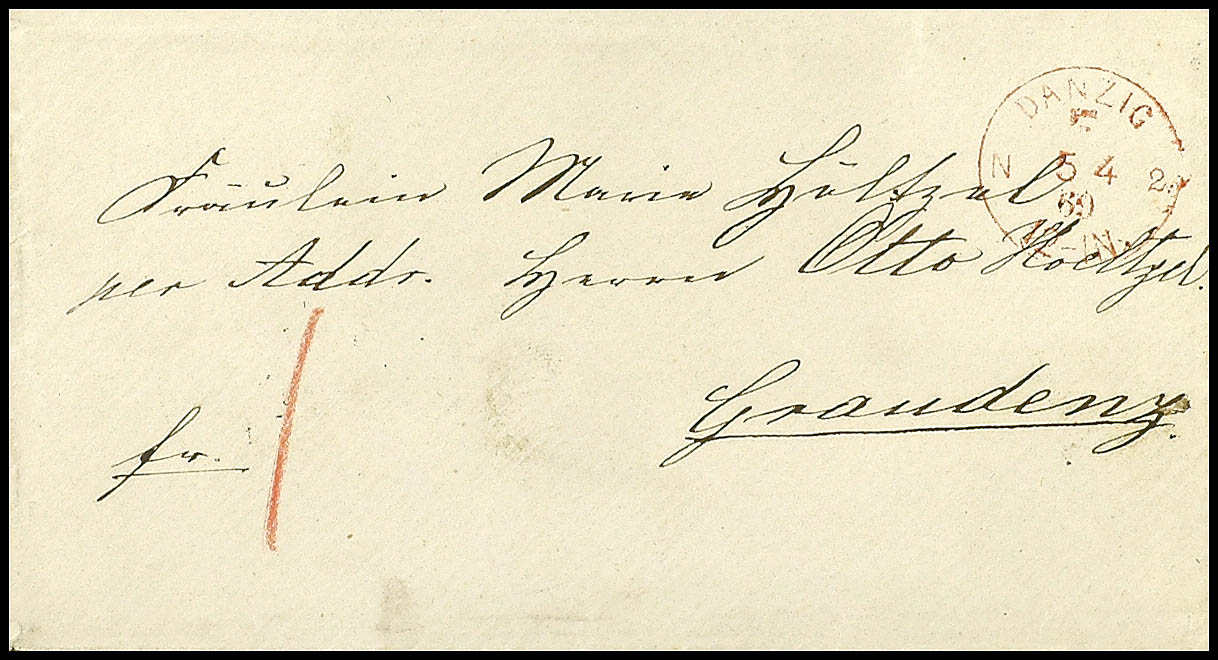 DANZIG
F
N 5 4 2
69
12-1N.
Fräulein Marie Höltzel
per Addr. Herrn Otto Hoeltzel.
Graudenz.
fr.